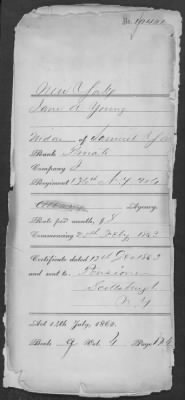 No.
New York
Jane A Young
Widow of Samuel
Rank Private
Company
Regiment 136th N.Y. Vols
Albany Agency.
Rate per month, $8
Commencing Feby 1863
Certificate dated 17th Dec 1863
and sent to Pensioner
Scottsburgh
N.Y
Act 14th July, 1862.
Book G Vol. 4 Page